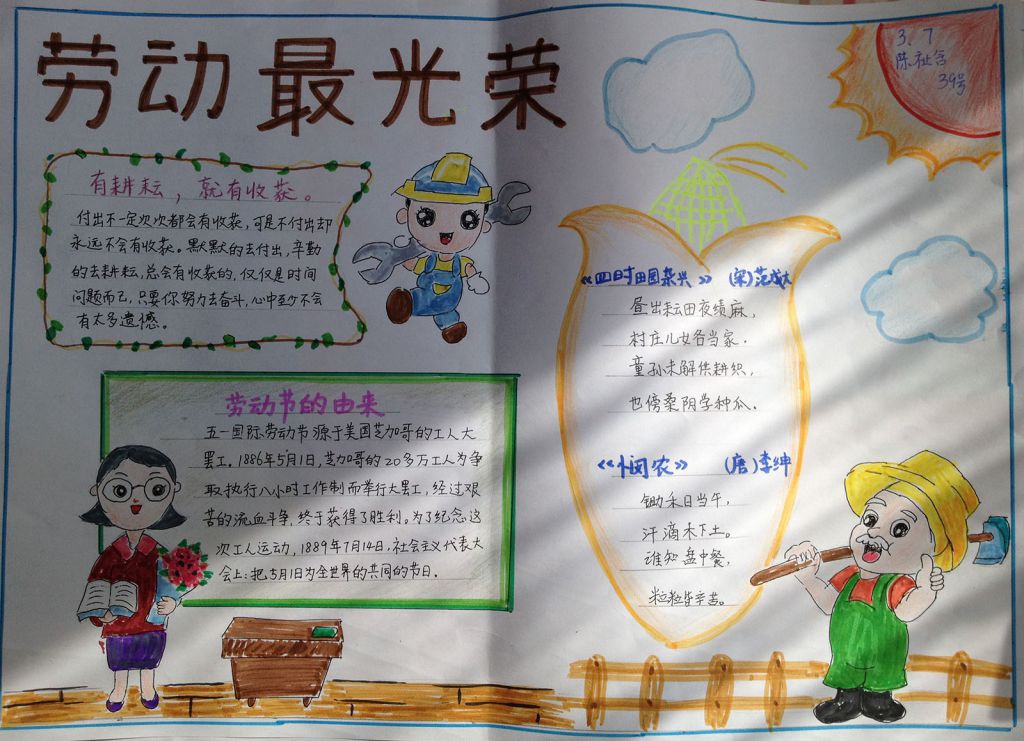 劳动最光荣
3、7
陈祉含
39号
有耕耘，就有收获。
付出不一定次次都会有收获，可是不付出却
永远不会有收获。默默的去付出，辛勤
的去耕耘，总会有收获的，仅仅是时间
问题而已，只要你努力去奋斗，心中至少不会
有太多遗憾。
劳动节的由来
五一国际劳动节源于美国芝加哥的工人大
罢工。1886年5月1日，芝加哥的20多万工人为争
取执行八小时工作制而举行大罢工，经过艰
苦的流血斗争，终于获得了胜利。为了纪念这
次工人运动，1889年7月14日，社会主义代表大
会上：把5月1日为全世界的共同的节日.
《四时田园杂兴》 (宋)范成大
昼出耘田夜绩麻，
村庄儿女各当家．
童孙未解供耕织，
也傍桑阴学种瓜．
《悯农》 (唐)李绅
锄禾日当午，
汗滴禾下土。
谁知盘中餐，
粒粒皆辛苦。